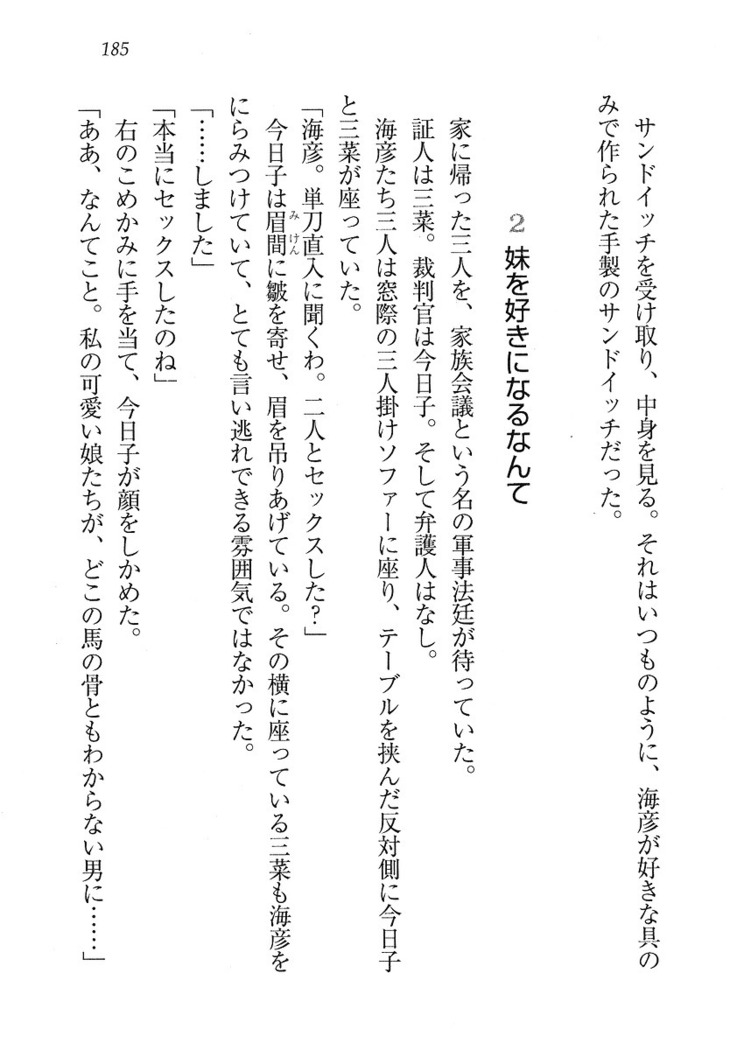 185
サンドイッチを受け取り、中身を見る。それはいつものように、海彦が好きな具の
みで作られた手製のサンドイッチだった。
2 妹を好きになるなんて
家に帰った三人を、家族会議という名の軍事法廷が待っていた。
証人は三菜。裁判官は今日子。そして弁護人はなし。
海彦たち三人は窓際の三人掛けソファーに座り、テーブルを挟んだ反対側に今日子
と三菜が座っていた。
「海彦。単刀直入に聞くわ。二人とセックスした?」
今日子は眉間に皺を寄せ、眉を吊りあげている。その横に座っている三菜も海彦を
みけん
にらみつけていて、とても言い逃れできる雰囲気ではなかった。
「……しました」
「本当にセックスしたのね」
右のこめかみに手を当て、今日子が顔をしかめた。
「ああ、なんてこと。私の可愛い娘たちが、どこの馬の骨ともわからない男に……」